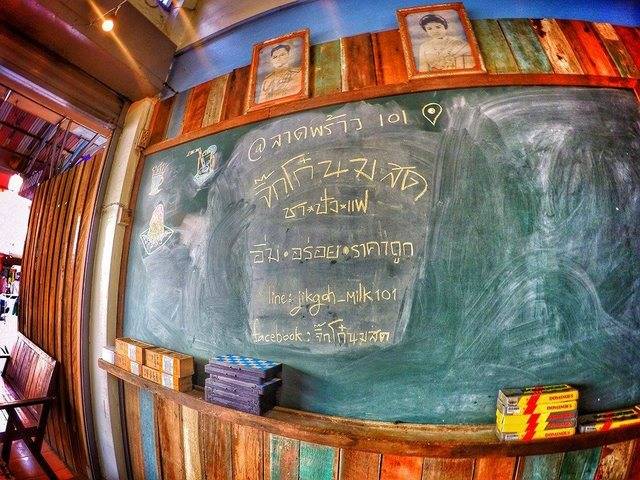 @ลาดพร้าว 101
จิ๊กโก๋นมสด
ชา*ปัง*แฟ
อิ่ม•อร่อย•ราคาถูก
line: jikgoh_milk101
facebook: จิ๊กโก๋นมสด
DOMINOES
DOMINOES
DOMINOES